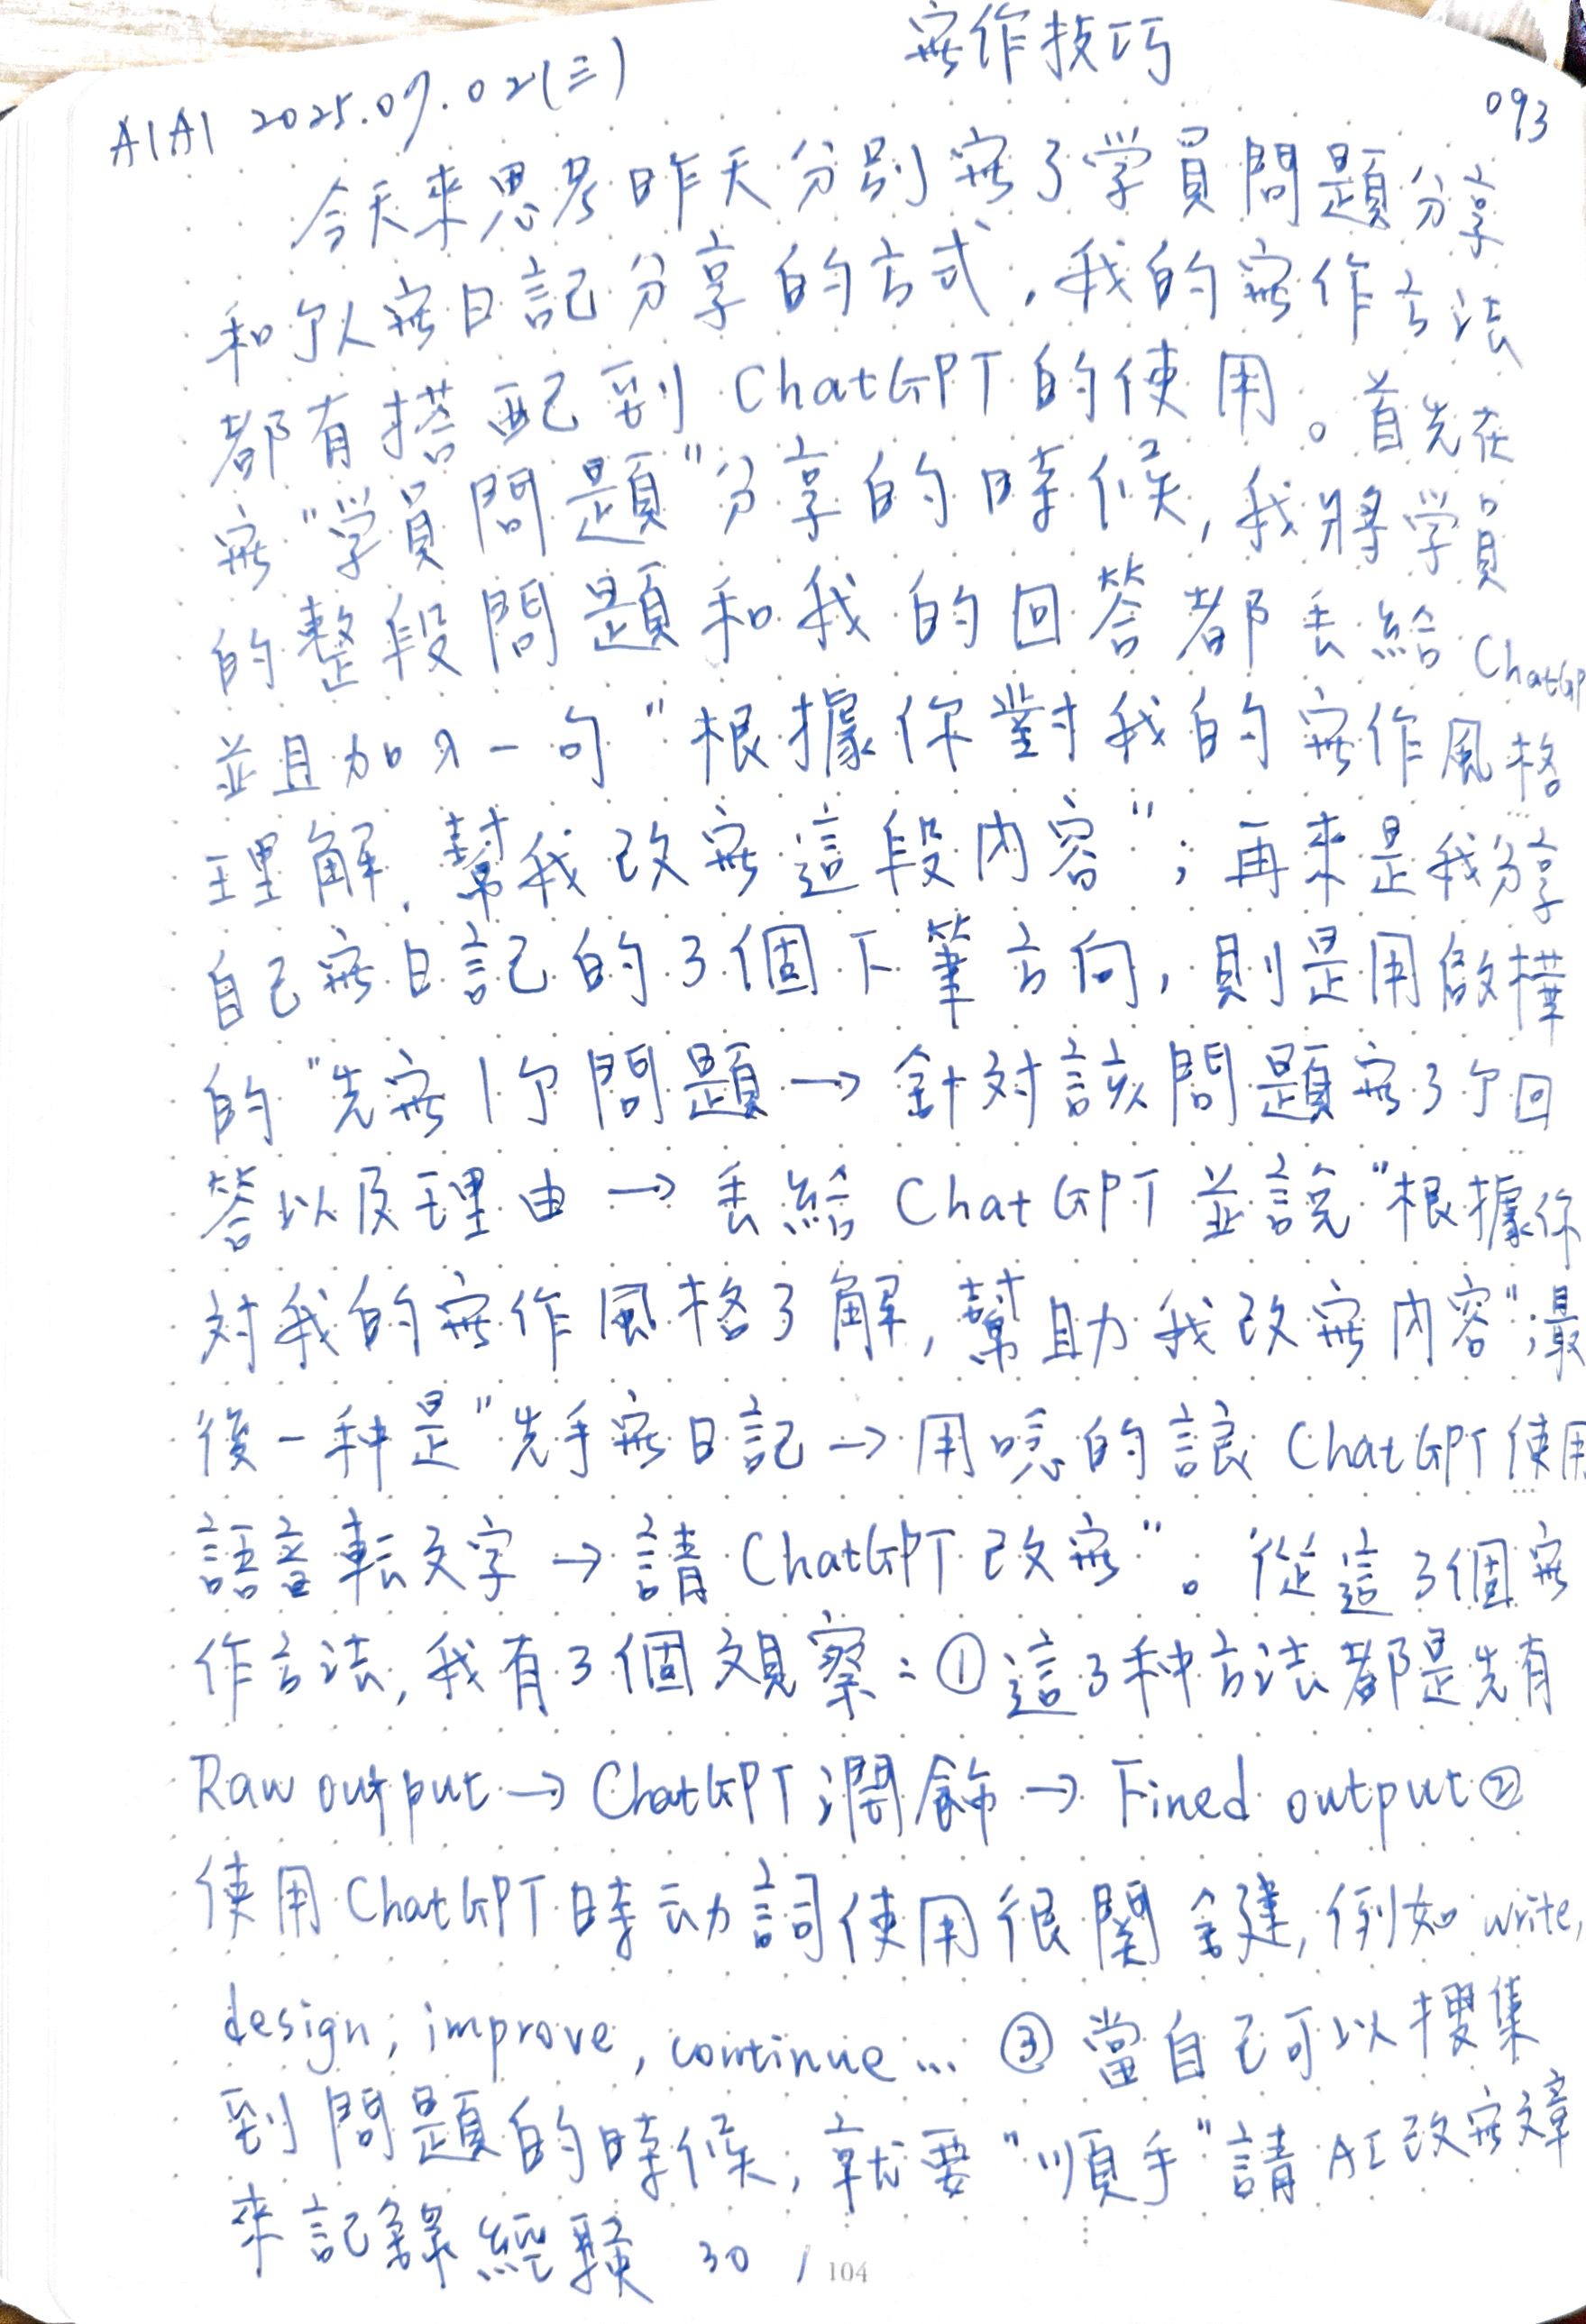 寫作技巧
AIAI 2025.07.02(三)
093
今天來思考昨天分別寫了学員問題分享
和以寫日記分享的方式,我的寫作方法
都有搭配到 ChatGPT 的使用。首先在
寫"学員問題"分享的時候,我將学員
的整段問題和我的回答都丟給 ChatGP
並且加入一句"根據你對我的寫作風格
理解,幫我改寫這段內容";再來是我分享
自己寫日記的3個下筆方向,則是用啟樺
的"先寫1个問題→針对該問題寫3个回
答以及理由→丟給 ChatGPT 並說"根據你
对我的寫作風格了解,幫助我改寫內容";最
後一种是"先手寫日記→用唸的讓 ChatGPT 使用
語音転文字→請 ChatGPT 改寫"。從這3個寫
作方法,我有3個观察:①這3种方法都是先有
Raw output → ChatGPT 潤飾 → Fined output ②
使用 ChatGPT 時动詞使用很關鍵,例如 write,
design, improve, continue... ③當自己可以搜集
到問題的時候,就要"順手"請 AI 改寫文章
來記錄經驗 30 / 104